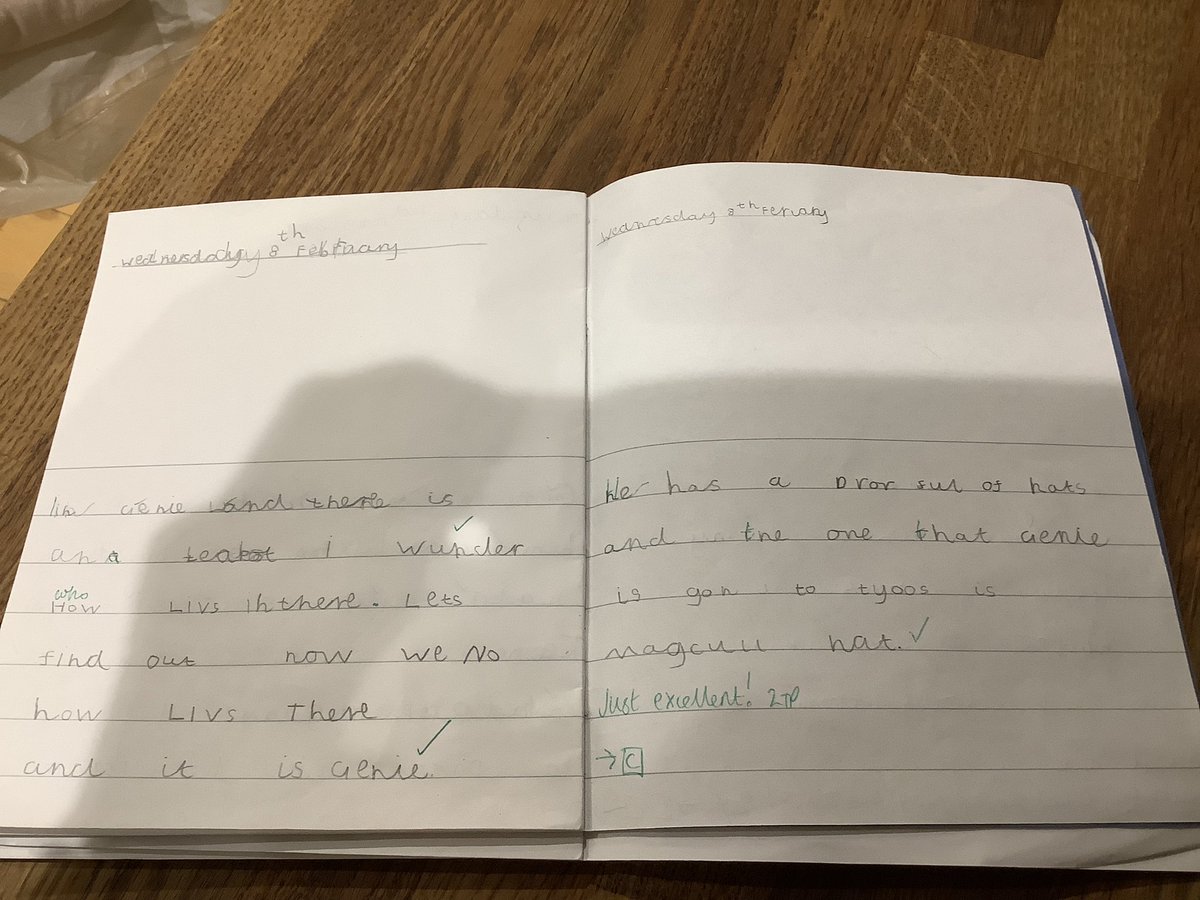 Wednesday 8th February
genie Land there is
an a teabot i wunder
who
How Livs in there. Lets
find out now we No
how Livs There
and it is Genie.
Wednesday 8th Feruary
He has a Dror ful of hats
and the one that Genie
is gon to tyoos is
magcull hat.
Just excellent! 2TP
→ C